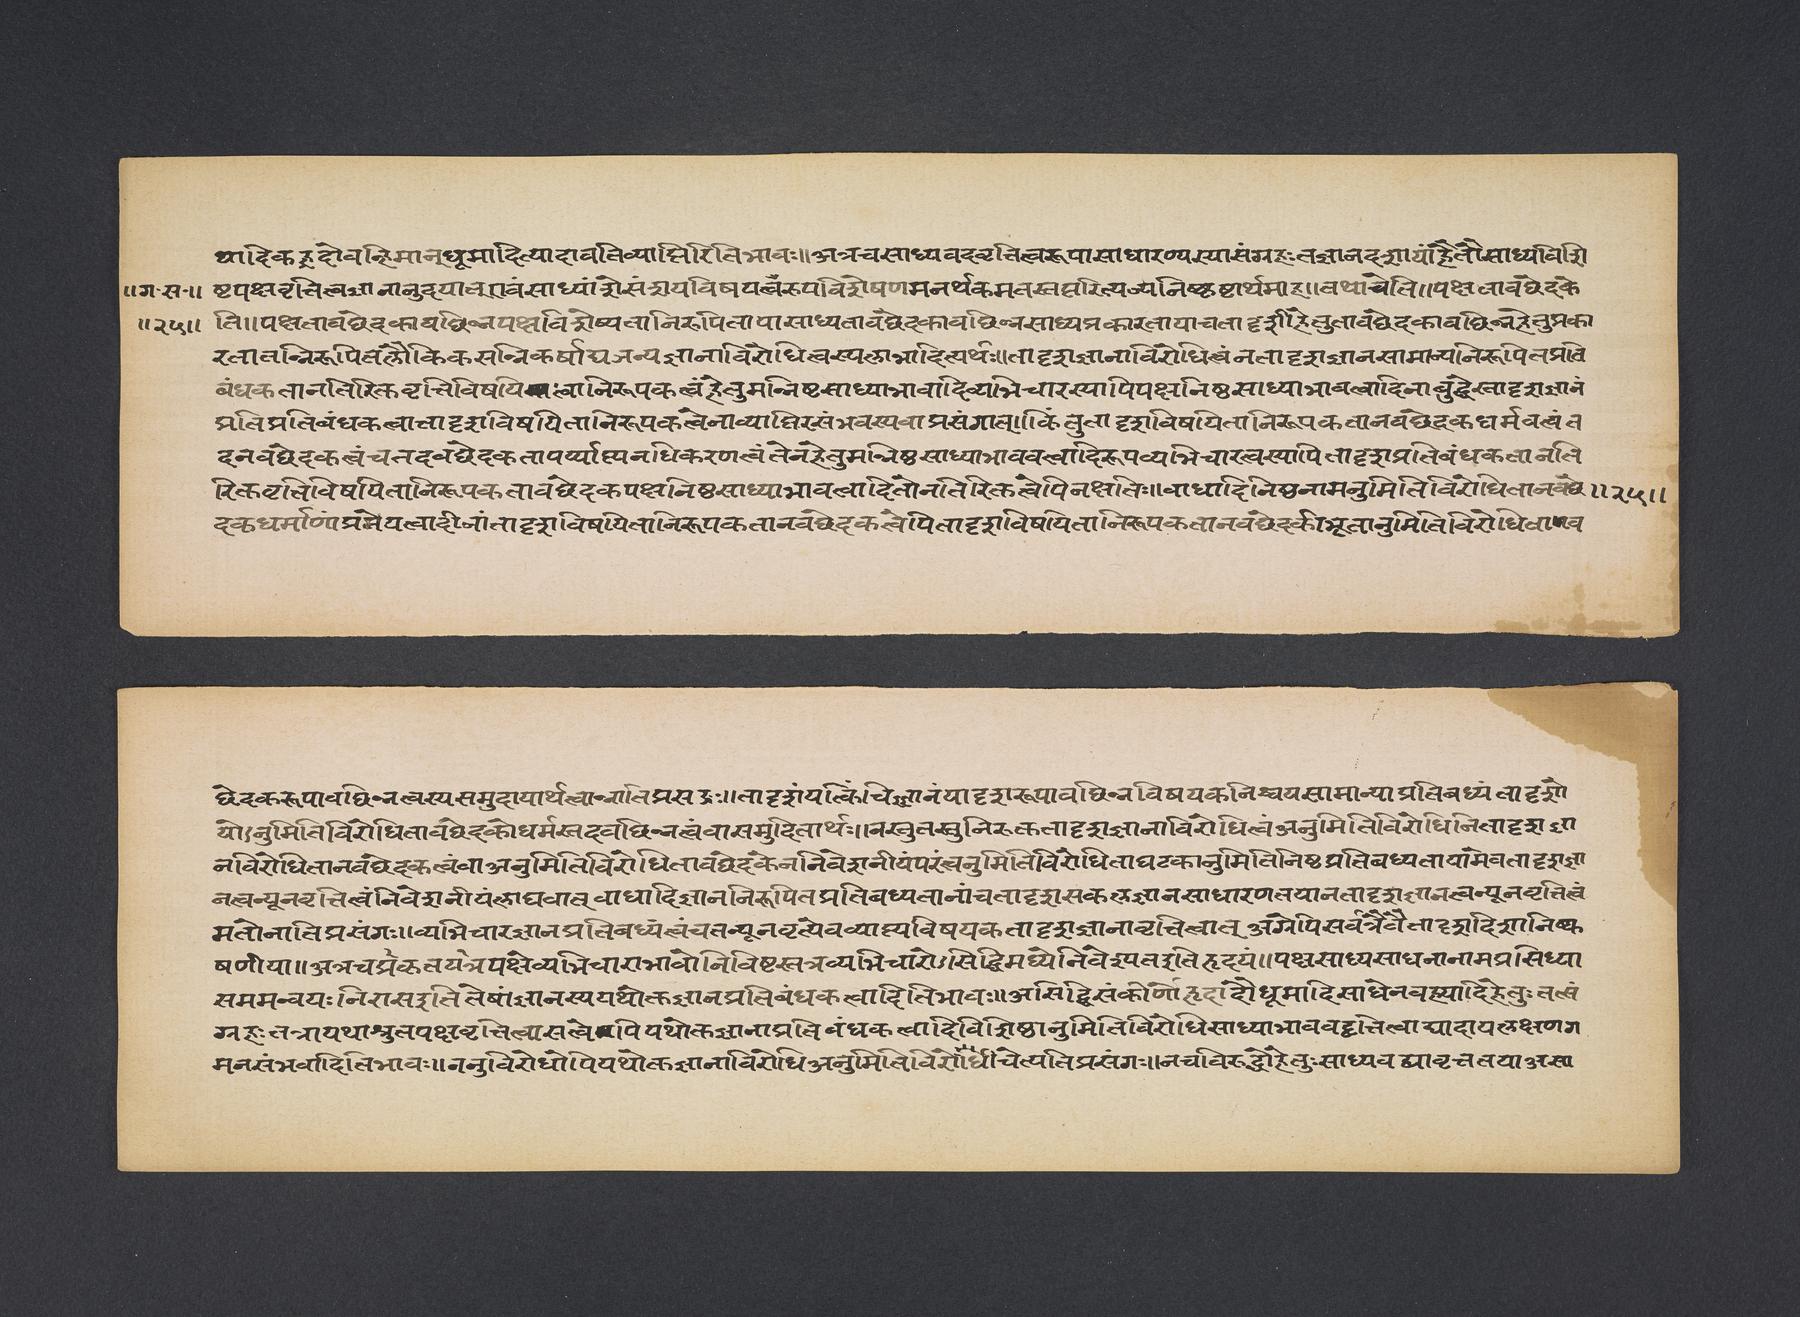 थादिकह्रदोवह्निमान्धूमादित्यादावतिव्याप्तिरितिभावः॥अत्रचसाध्यवदवृत्तित्वरूपासाधारण्यस्यासंग्रहःतज्ज्ञानदशायांहेतौसाध्यविशि
॥ग॰स॰॥ ष्टपक्षवृत्तित्वज्ञानानुदयात्एवंसाध्यांशेसंशयविषयत्वरूपविशेषणमनर्थकमतस्तत्परित्यज्यनिष्कृष्टार्थमाह॥तथाचेति॥पक्षतावछेदके
॥२५॥ ति॥पक्षतावछेदकावछिन्नपक्षविशेष्यतानिरूपितायासाध्यतावछेदकावछिन्नसाध्यप्रकारतायाचतादृशीहेतुतावछेदकावछिन्नहेतुप्रका
रतातन्निरूपितलौकिकसन्निकर्षाद्यजन्यज्ञानाविरोधित्वस्यलाभादित्यर्थः॥तादृशज्ञानाविरोधित्वंनतादृशज्ञानसामान्यनिरूपितप्रति
बंधकतानतिरिक्तवृत्तिविषयितानिरूपकत्वंहेतुमन्निष्टसाध्याभावादिव्यभिचारस्यापिपक्षनिष्ठसाध्याभावत्वादिनाबुद्धेस्तादृशज्ञानं
प्रतिप्रतिबंधकत्वात्तादृशविषयितानिरूपकत्वेनाव्याप्तिरसंभवस्यवाप्रसंगात्॥किंतुतादृशविषयितानिरूपकतानवछेदकधर्मवत्वंत
दनवछेदकत्वंचतदवछेदकतापर्य्याप्त्यनधिकरणत्वंतेनहेतुमन्निष्ठसाध्याभाववत्वादिरूपव्यभिचारत्वस्यापितादृशप्रतिबंधकतानति
रिक्तवृत्तिविषयितानिरूपकतावछेदकपक्षनिष्ठसाध्याभावत्वादितोनतिरिक्तत्वेपिनक्षतिः॥बाधादिनिष्ठनामनुमितिविरोधितानवछे ॥२५॥
दकधर्माणांप्रमेयत्वादीनांतादृशविषयितानिरूपकतानवछेदकत्वेपितादृशविषयितानिरूपकतानवछेदकीभूतानुमितिविरोधिताव
छेदकरूपावछिन्नत्वस्यसमुदायार्थत्वान्नातिप्रसङ्गः॥तादृशंयत्किंचिज्ज्ञानंयादृशरूपावछिन्नविषयकनिश्चयसामान्याप्रतिबध्यंतादृशो
योऽनुमितिविरोधितावछेदकोधर्मस्तदवछिन्नत्वंवासमुदितार्थः॥नखुलखुनिरुक्ततादृशज्ञानाविरोधित्वंअनुमितिविरोधिनितादृशज्ञा
नविरोधितानवछेदकत्वंवाअनुमितिविरोधितावछेदकेननिवेशनीयंपरंत्वनुमितिविरोधिताघटकानुमितिनिष्ठप्रतिबध्यतायामेवतादृशज्ञा
नत्वन्यूनवृत्तित्वंनिवेशनीयंलाघवात्बाधादिज्ञाननिरूपितप्रतिबध्यतानांचतादृशसकलज्ञानसाधारणतयानतादृशज्ञानत्वन्यूनवृत्तित्वं
मतोनातिप्रसंगः॥व्यभिचारज्ञानप्रतिबध्यंत्वंचतन्यूनवृत्त्येवव्याप्त्यविषयकतादृशज्ञानावृत्तित्वात्अग्रेपिसर्वत्रैवैतादृशदिशानिष्क
षणीया॥अत्रचप्रकृतयत्रपक्षेव्यभिचाराभावोनिविष्टस्तत्रव्यभिचारोऽसिद्धिमध्येनिवेश्यतइतिहृदयं॥पक्षसाध्यसाधनानामप्रसिध्या
सममन्वयःनिरासइतितेषांज्ञानस्ययथोक्तज्ञानप्रतिबंधकत्वादितिभावः॥असिद्धिसंकीर्णाह्रदादौधूमादिसाधनेवह्न्यादिहेतुःतत्सं
ग्रहःतत्रायथाश्रुतपक्षवृत्तित्वासत्वेपियथोक्तज्ञानाप्रतिबंधकत्वादिविशिष्ठानुमितिविरोधिसाध्याभाववद्वृत्तित्वाद्यादायलक्षणग
मनसंभवादितिभावः॥ननुविरोधोपियथोक्तज्ञानाविरोधिअनुमितिविरोधीचेत्यतिप्रसंगः॥नचविरुद्धोहेतुःसाध्यवद्यावृत्ततयाअसा